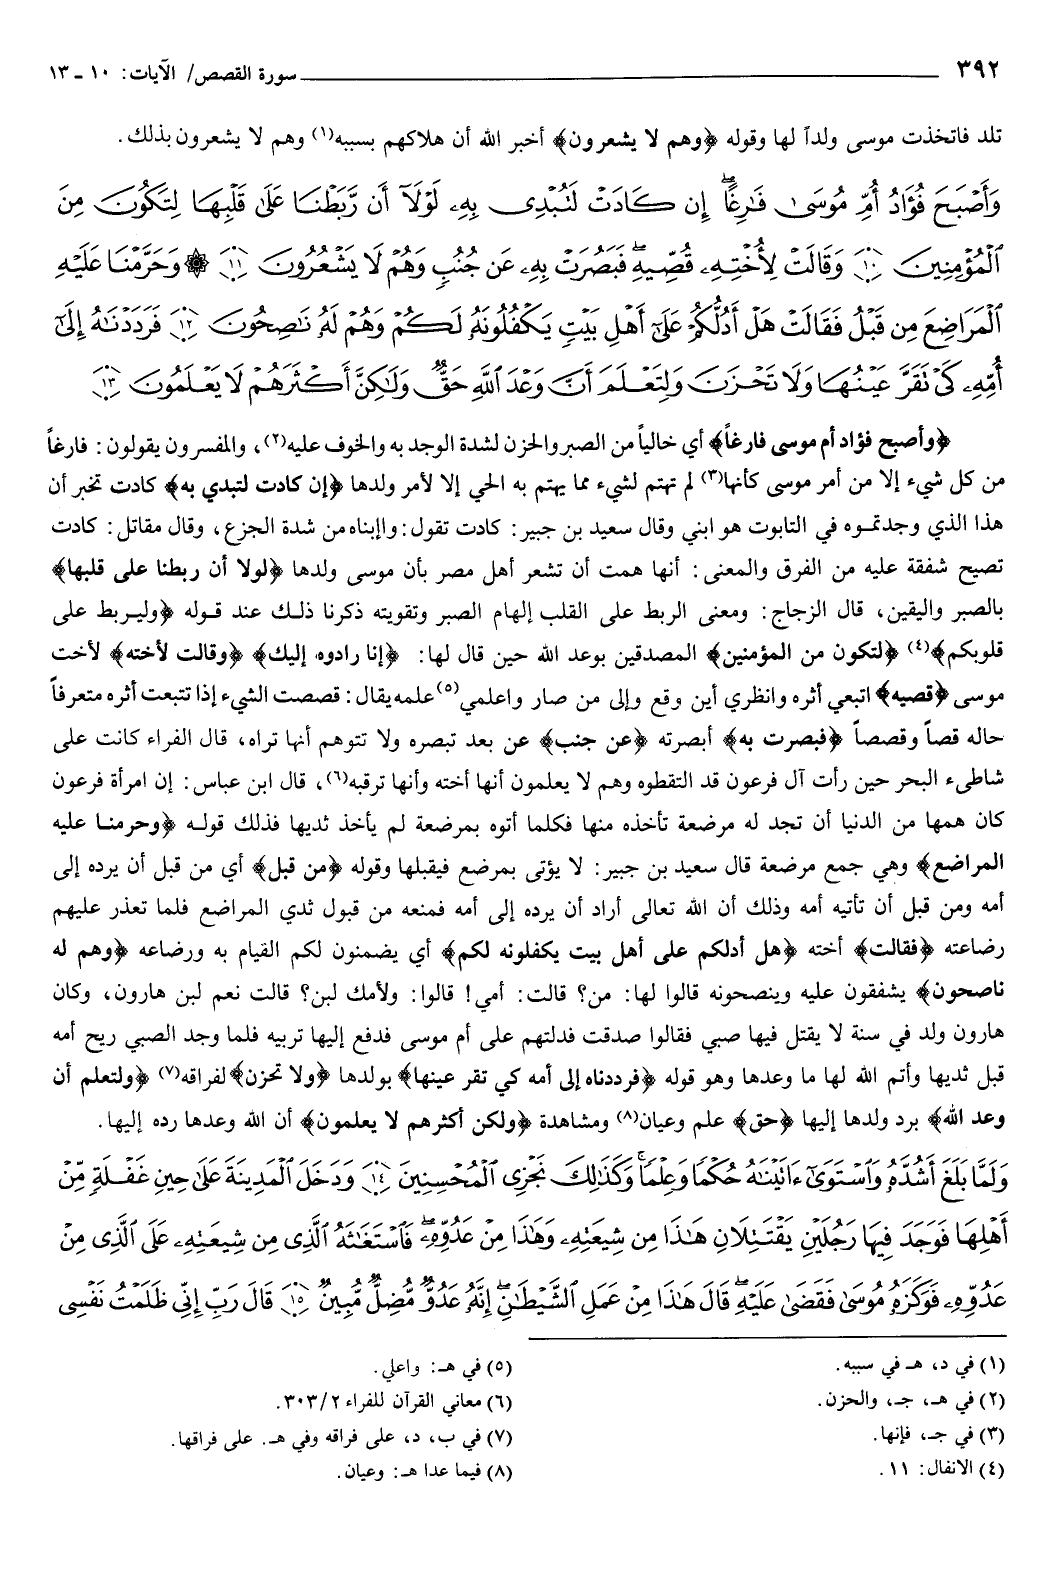 ٣٩٢ سورة القصص/ الآيات: ١٠ ـ ١٣
تلد فاتخذت موسى ولداً لها وقوله ﴿وهم لا يشعرون﴾ أخبر الله أن هلاكهم بسببه(١) وهم لا يشعرون بذلك.
وَأَصْبَحَ فُؤَادُ أُمِّ مُوسَىٰ فَارِغًا ۖ إِن كَادَتْ لَتُبْدِي بِهِۦ لَوْلَآ أَن رَّبَطْنَا عَلَىٰ قَلْبِهَا لِتَكُونَ مِنَ
ٱلْمُؤْمِنِينَ ﴿١٠﴾ وَقَالَتْ لِأُخْتِهِۦ قُصِّيهِ ۖ فَبَصُرَتْ بِهِۦ عَن جُنُبٍ وَهُمْ لَا يَشْعُرُونَ ﴿١١﴾ ۞ وَحَرَّمْنَا عَلَيْهِ
ٱلْمَرَاضِعَ مِن قَبْلُ فَقَالَتْ هَلْ أَدُلُّكُمْ عَلَىٰٓ أَهْلِ بَيْتٍ يَكْفُلُونَهُۥ لَكُمْ وَهُمْ لَهُۥ نَاصِحُونَ ﴿١٢﴾ فَرَدَدْنَاهُ إِلَىٰٓ
أُمِّهِۦ كَىْ تَقَرَّ عَيْنُهَا وَلَا تَحْزَنَ وَلِتَعْلَمَ أَنَّ وَعْدَ ٱللَّهِ حَقٌّ وَلَٰكِنَّ أَكْثَرَهُمْ لَا يَعْلَمُونَ ﴿١٣﴾
﴿وأصبح فؤاد أم موسى فارغاً﴾ أي خالياً من الصبر والحزن لشدة الوجد به والخوف عليه(٢)، والمفسرون يقولون: فارغاً
من كل شيء إلا من أمر موسى كأنها(٣) لم تهتم لشيء مما يهتم به الحي إلا لأمر ولدها ﴿إن كادت لتبدي به﴾ كادت تخبر أن
هذا الذي وجدتموه في التابوت هو ابني وقال سعيد بن جبير: كادت تقول: واإبناه من شدة الجزع، وقال مقاتل: كادت
تصيح شفقة عليه من الفرق والمعنى: أنها همت أن تشعر أهل مصر بأن موسى ولدها ﴿لولا أن ربطنا على قلبها﴾
بالصبر واليقين، قال الزجاج: ومعنى الربط على القلب إلهام الصبر وتقويته ذكرنا ذلك عند قوله ﴿وليربط على
قلوبكم﴾(٤) ﴿لتكون من المؤمنين﴾ المصدقين بوعد الله حين قال لها: ﴿إنا رادوه إليك﴾ ﴿وقالت لأخته﴾ لأخت
موسى ﴿قصيه﴾ اتبعي أثره وانظري أين وقع وإلى من صار واعلمي(٥) علمه يقال: قصصت الشيء إذا تتبعت أثره متعرفاً
حاله قصاً وقصصاً ﴿فبصرت به﴾ أبصرته ﴿عن جنب﴾ عن بعد تبصره ولا تتوهم أنها تراه، قال الفراء كانت على
شاطىء البحر حين رأت آل فرعون قد التقطوه وهم لا يعلمون أنها أخته وأنها ترقبه(٦)، قال ابن عباس: إن امرأة فرعون
كان همها من الدنيا أن تجد له مرضعة تأخذه منها فكلما أتوه بمرضعة لم يأخذ ثديها فذلك قوله ﴿وحرمنا عليه
المراضع﴾ وهي جمع مرضعة قال سعيد بن جبير: لا يؤتى بمرضع فيقبلها وقوله ﴿من قبل﴾ أي من قبل أن يرده إلى
أمه ومن قبل أن تأتيه أمه وذلك أن الله تعالى أراد أن يرده إلى أمه فمنعه من قبول ثدي المراضع فلما تعذر عليهم
رضاعته ﴿فقالت﴾ أخته ﴿هل أدلكم على أهل بيت يكفلونه لكم﴾ أي يضمنون لكم القيام به ورضاعه ﴿وهم له
ناصحون﴾ يشفقون عليه وينصحونه قالوا لها: من؟ قالت: أمي! قالوا: ولأمك لبن؟ قالت نعم لبن هارون، وكان
هارون ولد في سنة لا يقتل فيها صبي فقالوا صدقت فدلتهم على أم موسى فدفع إليها تربيه فلما وجد الصبي ريح أمه
قبل ثديها وأتم الله لها ما وعدها وهو قوله ﴿فرددناه إلى أمه كي تقر عينها﴾ بولدها ﴿ولا تحزن﴾ لفراقه(٧) ﴿ولتعلم أن
وعد الله﴾ برد ولدها إليها ﴿حق﴾ علم وعيان(٨) ومشاهدة ﴿ولكن أكثرهم لا يعلمون﴾ أن الله وعدها رده إليها.
وَلَمَّا بَلَغَ أَشُدَّهُۥ وَٱسْتَوَىٰٓ ءَاتَيْنَٰهُ حُكْمًا وَعِلْمًا ۚ وَكَذَٰلِكَ نَجْزِي ٱلْمُحْسِنِينَ ﴿١٤﴾ وَدَخَلَ ٱلْمَدِينَةَ عَلَىٰ حِينِ غَفْلَةٍ مِّنْ
أَهْلِهَا فَوَجَدَ فِيهَا رَجُلَيْنِ يَقْتَتِلَانِ هَٰذَا مِن شِيعَتِهِۦ وَهَٰذَا مِنْ عَدُوِّهِۦ ۖ فَٱسْتَغَٰثَهُ ٱلَّذِى مِن شِيعَتِهِۦ عَلَى ٱلَّذِى مِنْ
عَدُوِّهِۦ فَوَكَزَهُۥ مُوسَىٰ فَقَضَىٰ عَلَيْهِ ۖ قَالَ هَٰذَا مِنْ عَمَلِ ٱلشَّيْطَٰنِ ۖ إِنَّهُۥ عَدُوٌّ مُّضِلٌّ مُّبِينٌ ﴿١٥﴾ قَالَ رَبِّ إِنِّي ظَلَمْتُ نَفْسِى
(١) في د، هـ في سببه.
(٢) في هـ، جـ، والحزن.
(٣) في جـ، فإنها.
(٤) الانفال: ١١.
(٥) في هـ: واعلي.
(٦) معاني القرآن للفراء ٣٠٣/٢.
(٧) في ب، د، على فراقه وفي هـ. على فراقها.
(٨) فيما عدا هـ: وعيان.